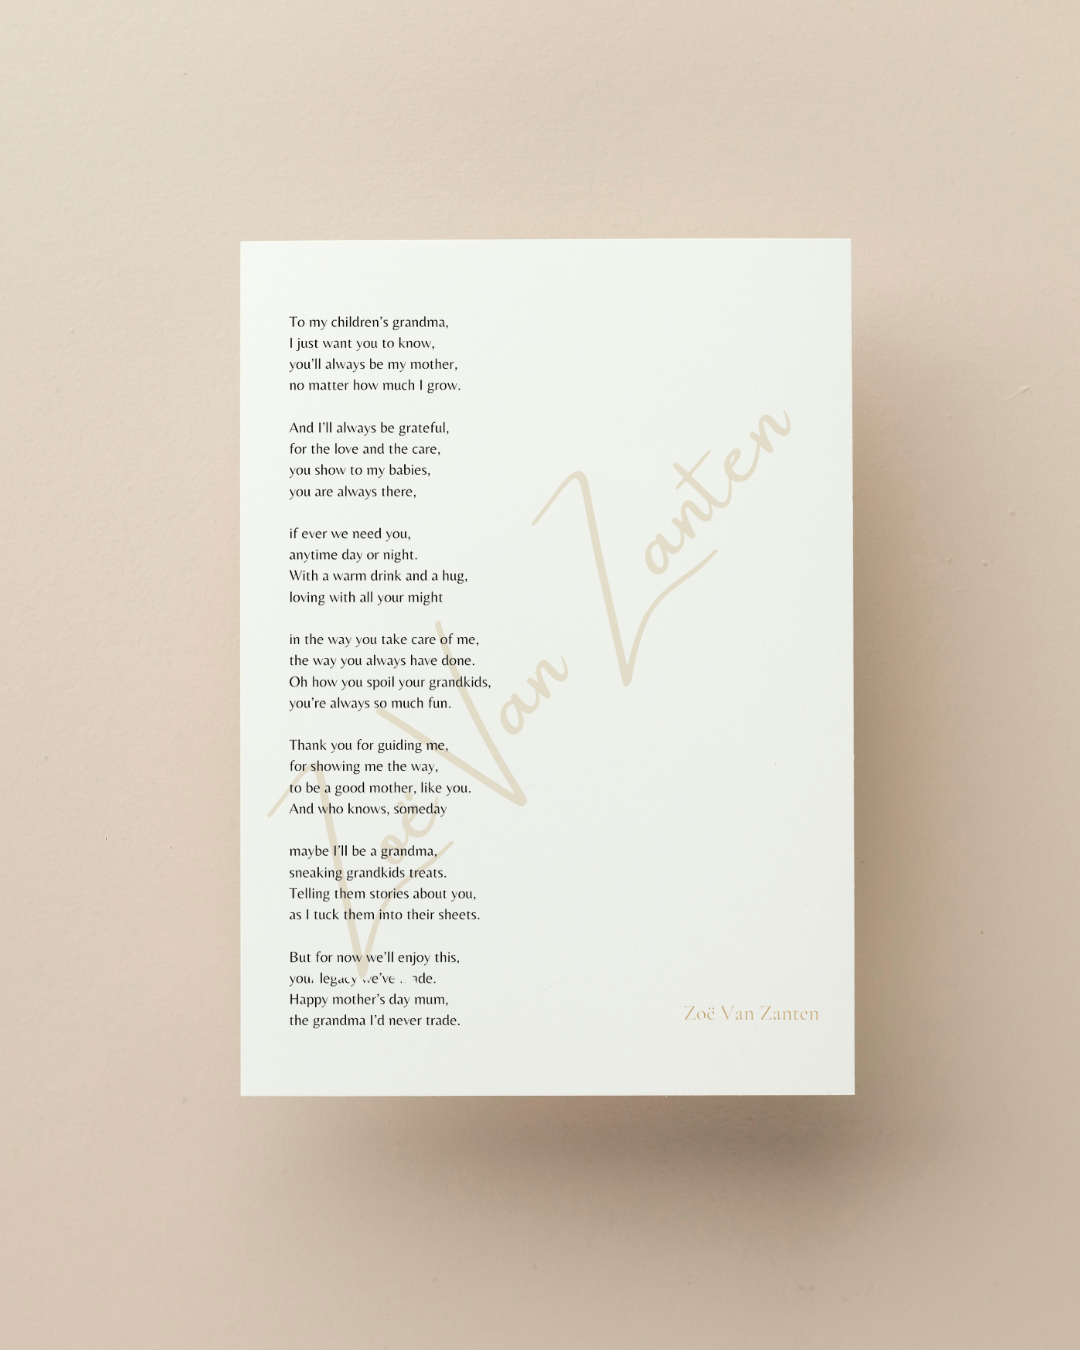 To my children's grandma,
I just want you to know,
you'll always be my mother,
no matter how much I grow.

And I'll always be grateful,
for the love and the care,
you show to my babies,
you are always there,

if ever we need you,
anytime day or night.
With a warm drink and a hug,
loving with all your might

in the way you take care of me,
the way you always have done.
Oh how you spoil your grandkids,
you're always so much fun.

Thank you for guiding me,
for showing me the way,
to be a good mother, like you.
And who knows, someday

maybe I'll be a grandma,
sneaking grandkids treats.
Telling them stories about you,
as I tuck them into their sheets.

But for now we'll enjoy this,
your legacy we've
Happy mother's day mum,
the grandma I'd never trade.
Zoë Van Zanten
Zoë Van Zanten